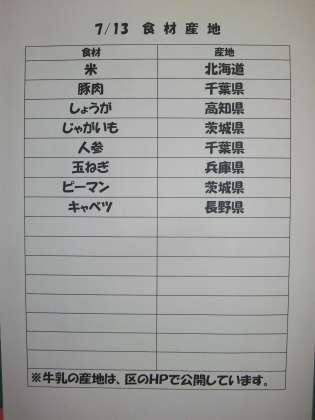 7/13 食材産地
食材 産地
米 北海道
豚肉 千葉県
しょうが 高知県
じゃがいも 茨城県
人参 千葉県
玉ねぎ 兵庫県
ピーマン 茨城県
キャベツ 長野県
※牛乳の産地は、区のHPで公開しています。